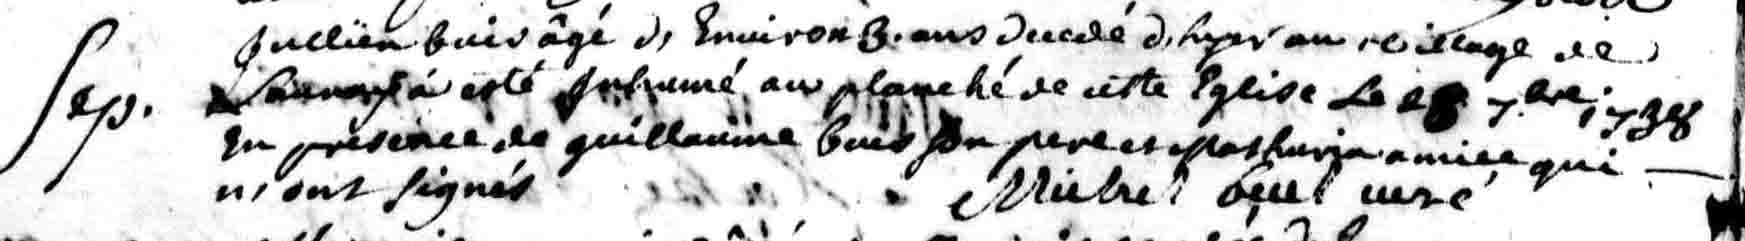 Jullien buis âgé d, Environ 3. ans decedé d, hyer au village de
Sep. a esté Inhumé au planché de cette Eglise Le 28 7.bre 1738
En presence de guillaume buis son pere et Mathurin amice qui
n, ont signés Michel curé